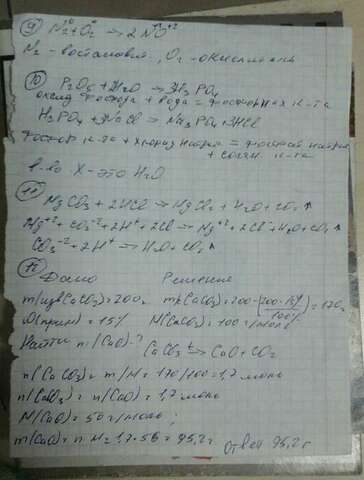 9 N2 + O2 → 2NO
N2 - востановит, O2 - окислитель
10 P2O5 + 3H2O → 3H3PO4
оксид фосфора + вода = фосфорная к-та
H3PO4 + 3NaCl → Na3PO4 + 3HCl
Фосфор к-та + хлорид натрия = фосфат натрия
+ солян к-та
в-во X - это H2O
11 MgCO3 + 2HCl → MgCl2 + H2O + CO2 ↑
Mg+2 + CO3-2 + 2H+ + 2Cl → Mg+2 + 2Cl + H2O + CO2 ↑
CO3-2 + 2H+ → H2O + CO2 ↑
12 Дано Решение
m(изв CaCO3) = 200г m(CaCO3) = 200 - (200·15%/100%) = 170г
ω(прим) = 15% M(CaCO3) = 100 г/моль
Найти m(CaO) - ?
CaCO3 t→ CaO + CO2
n(CaCO3) = m/M = 170/100 = 1,7 моль
n(CaCO3) = n(CaO) = 1,7 моль
M(CaO) = 56 г/моль;
m(CaO) = n·M = 1,7·56 = 95,2г Ответ 95,2 г